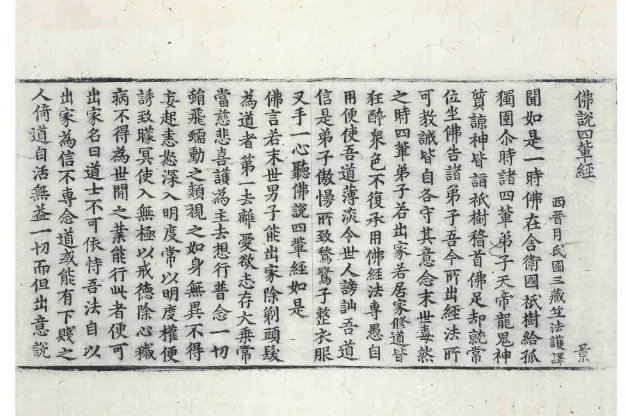 佛說四輩經
西晉月氏國三藏竺法護譯 景
聞如是一時佛在舍衛國祇樹給孤
獨園尒時諸四輩弟子天帝龍鬼神
質諒神皆詣祇樹稽首佛足却就常
位坐佛告諸弟子吾今所出經法所
可教誡皆自各守其意念末世毒然
之時四輩弟子若出家若居家修道皆
狂酔衆色不復承用佛經法專愚自
用使使吾道薄淡令世人謗訕吾道
信是弟子慠慢所致鶖鷺子整衣服
叉手一心聽佛說四輩經如是
佛言若末世男子能出家除剃頭髮
為道者第一去離愛欲志存大乘常
當慈悲喜護為主去想行普念一切
蜎飛蠕動之類視之如身無異不得
妄起恚怒深入明度常以明度權便
誘致矇冥使入無極以戒德除心穢
病不得為世間之業能行此者便可
出家名曰道士不可依恃吾法自以
出家為信不專念道或能有下賤之
人倚道自活無益一切而但出意說